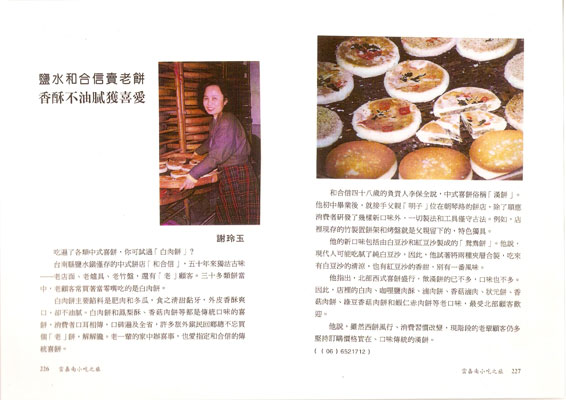 鹽水和合信賣老餅
香酥不油膩獲喜愛
謝玲玉
吃遍了各類中式喜餅,你可試過「白肉餅」?
台南縣鹽水鎮僅存的中式餅店「和合信」,五十年來獨沽古味
——老店面、老爐具、老竹盤,還有「老」顧客。三十多類餅當
中,老顧客常買著當零嘴吃的是白肉餅。
白肉餅主要餡料是肥肉和冬瓜,食之清甜黏牙,外皮香酥爽
口,卻不油膩。白肉餅和鳳梨酥、香菇肉餅等都是傳統口味的喜
餅,消費者口耳相傳,口碑遍及全省,許多旅外鎮民回鄉總不忘買
個「老」餅,解解饞。老一輩的家中辦喜事,也愛指定和合信的傳
統喜餅。
226 雲嘉南小吃之旅
和合信四十八歲的負責人李保全說,中式喜餅俗稱「漢餅」。
他初中畢業後,就接手父親「明子」位在朝琴路的餅店。除了順應
消費者研發了幾樣新口味外,一切製法和工具僅守古法。例如,店
裡現存的竹製置餅架和烤盤就是父親留下的,特色獨具。
他的新口味包括由白豆沙和紅豆沙製成的「鴛鴦餅」。他說,
現代人可能吃膩了純白豆沙,因此,他試著將兩種夾層合製,吃來
有白豆沙的清涼,也有紅豆沙的香甜,別有一番風味。
他指出,北部西式喜餅盛行,做漢餅的已不多,口味也不多。
因此,店裡的白肉、咖哩鹽肉酥、滷肉餅、香菇滷肉、狀元餅、香
菇肉餅、綠豆香菇肉餅和蝦仁赤肉餅等老口味,最受北部顧客歡
迎。
他說,雖然西餅風行,消費習慣改變,現階段的老輩顧客仍多
堅持訂購價格實在、口味傳統的漢餅。
((06)6521712)
雲嘉南小吃之旅 227